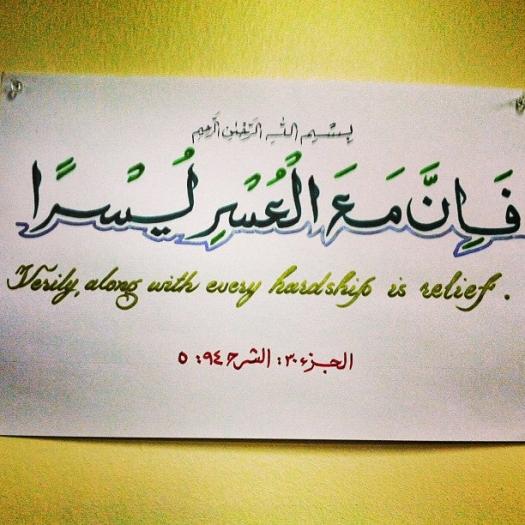 بسم الله الرحمن الرحيم
فَإِنَّ مَعَ الْعُسْرِ لُيُسْرًا
Verily, along with every hardship is relief.
الجزء ٣٠: الشرح ٩٤: ٥